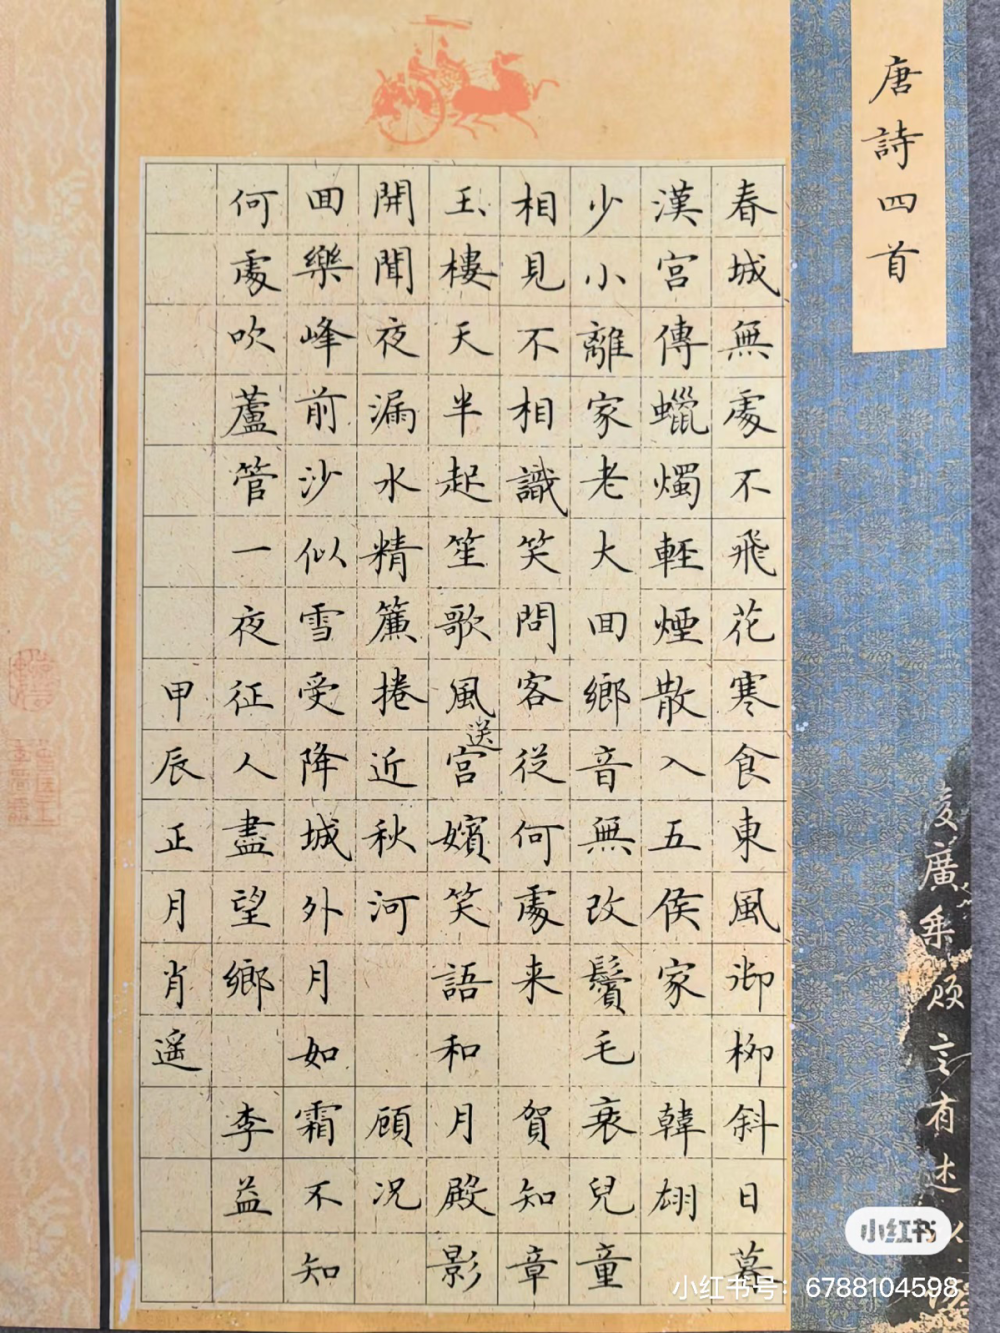 唐詩四首
春城無處不飛花寒食東風御柳斜日暮
漢宮傳蠟燭輕煙散入五侯家 韓翃
少小離家老大回鄉音無改鬢毛衰兒童
相見不相識笑問客從何處来 賀知章
玉樓天半起笙歌風送宮嬪笑語和月殿影
開聞夜漏水精簾捲近秋河 顧況
回樂峰前沙似雪受降城外月如霜不知
何處吹蘆管一夜征人盡望鄉 李益
甲辰正月肖遥
廣乘
言有述
小红书
小红书号：6788104598